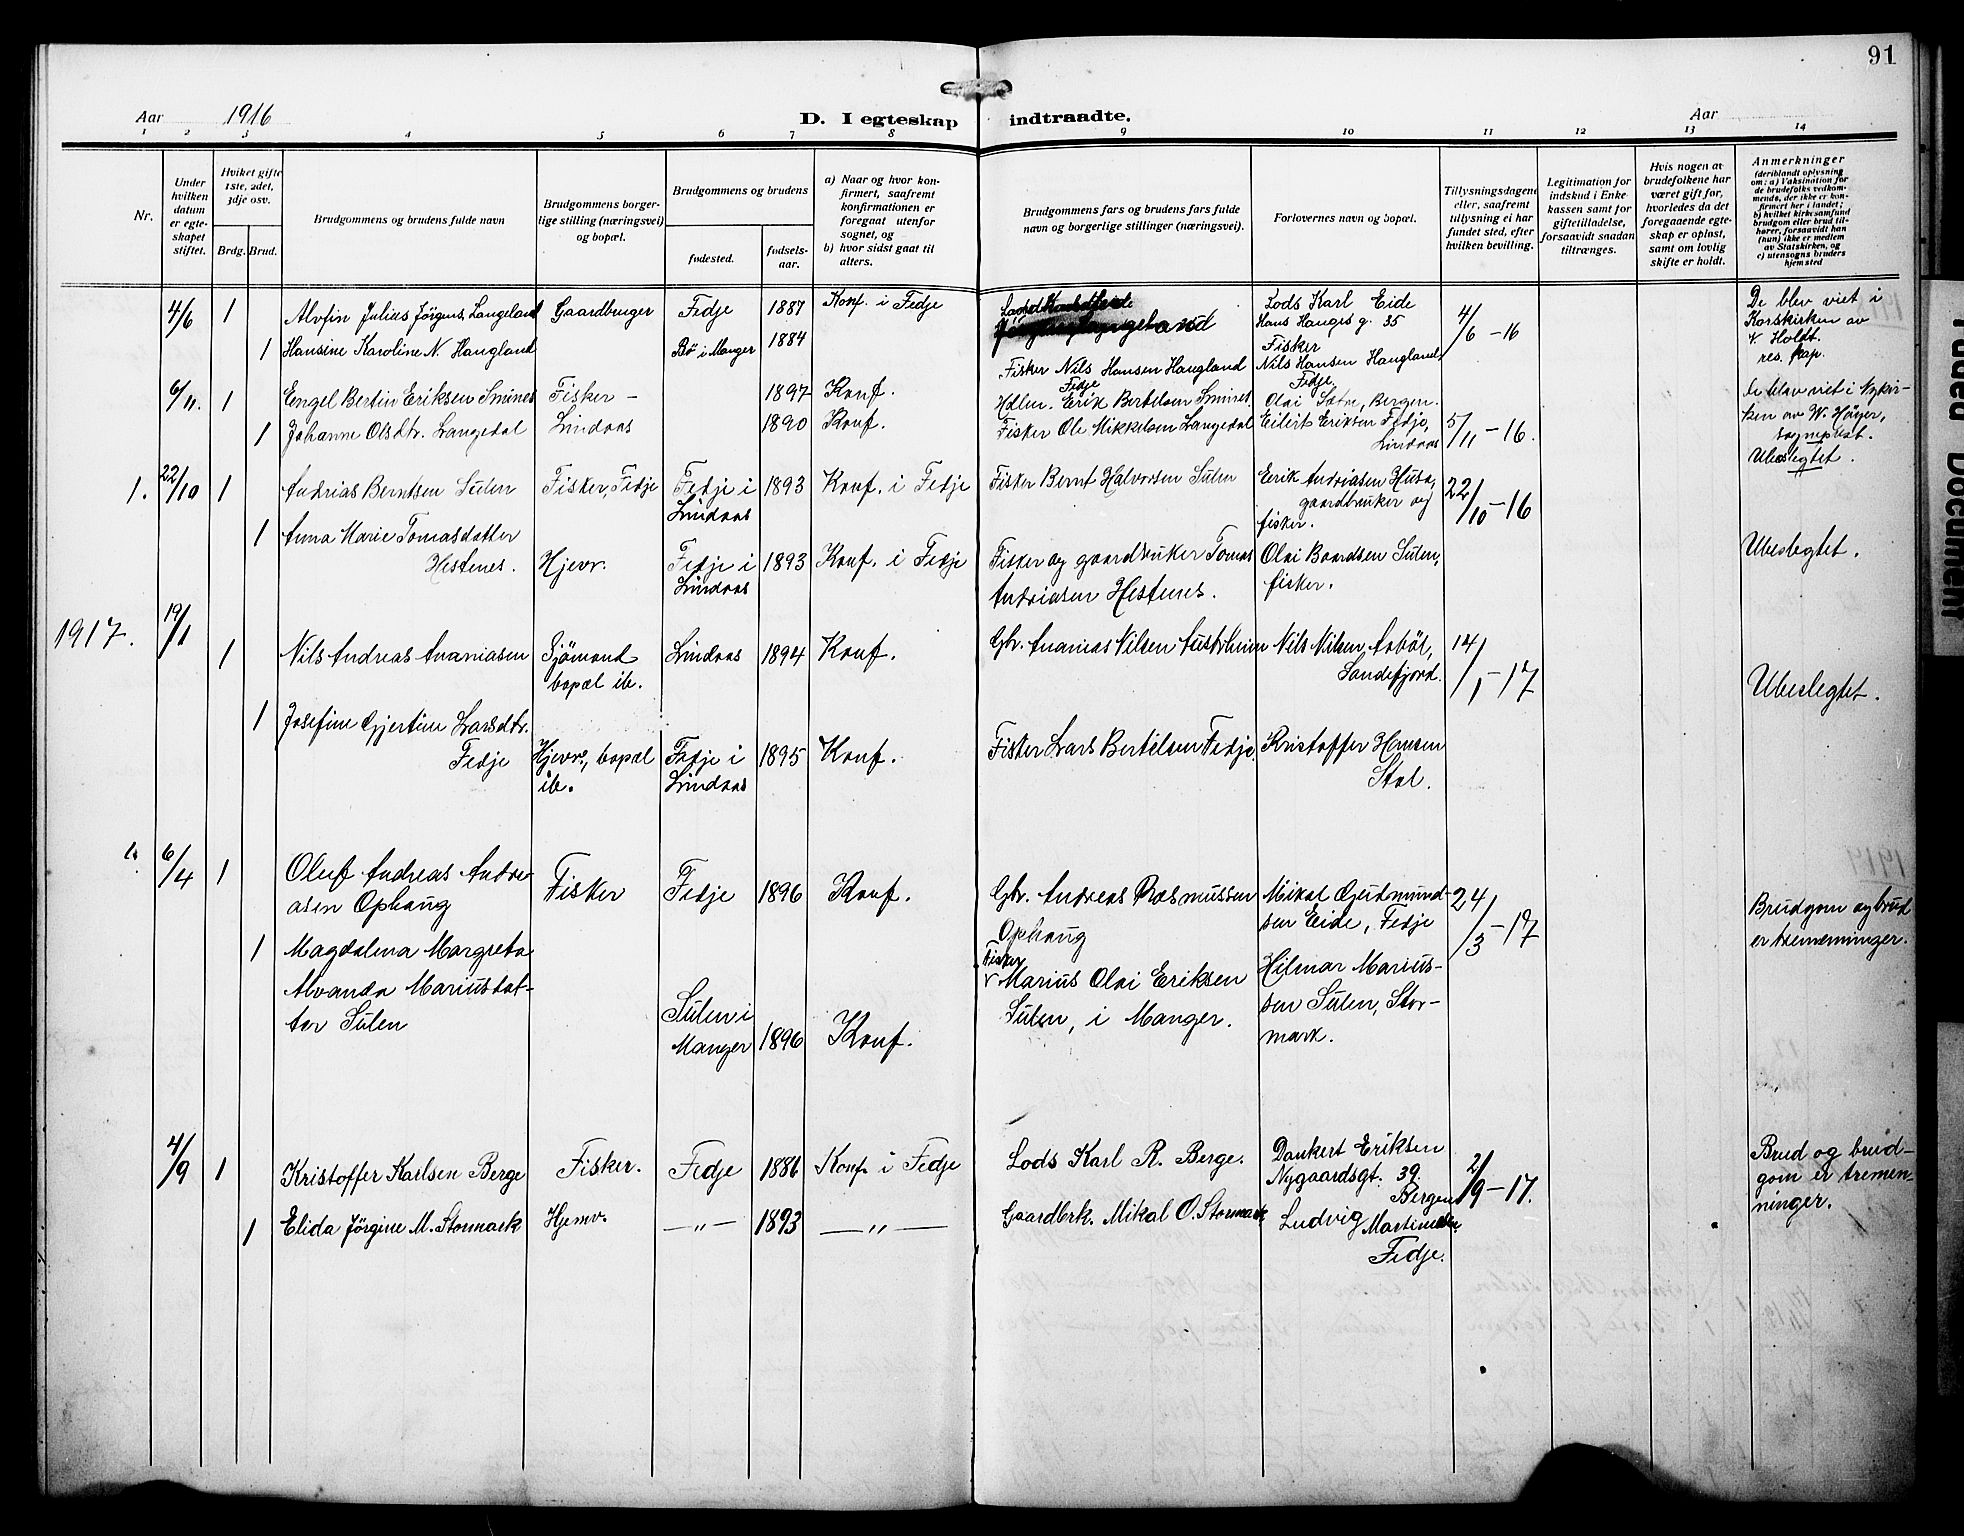 91
Aar 1916
D. I egteskap indtraadte.
Aar
1 2 3 4 5 6 7 8 9 10 11 12 13 14
Nr.
Under
hvilken
datum
er egte-
skapet
stiftet.
Hvilket gifte
1ste, 2det,
3dje osv.
Brdg. Brud.
Brudgommens og brudens fulde navn
Brudgommens borger-
lige stilling (næringsvei)
og bopæl.
Brudgommens og brudens
fødested.
fødsels-
aar.
a) Naar og hvor kon-
firmert, saafremt
konfirmationen er
foregaat utenfor
sognet, og
b) hvor sidst gaat til
alters.
Brudgommens fars og brudens fars fulde
navn og borgerlige stillinger (næringsvei).
Forlovernes navn og bopæl.
Tillysningsdagene
eller, saafremt
tillysning ei har
fundet sted, efter
hvilken bevilling.
Legitimation for
indskud i Enke-
kassen samt for
giftetilladelse,
forsaavidt saadan
tiltrænges.
Hvis nogen av
brudefolkene har
været gift før,
hvorledes da det
foregaaende egte-
skap er opløst,
samt om lovlig
skifte er holdt.
Anmerkninger
(deriblandt oplysning
om: a) Vaksination for
de brudefolks vedkom-
mende, der ikke er kon-
firmert her i landet;
b) hvilket kirkesamfund
brudgom eller brud til-
hører, forsaavidt han
(hun) ikke er medlem
av Statskirken, og
c) utensogns bruders
hjemsted
4/6 1 Alvfin Julius Jörgens. Langeland Gaardbruger Fedje 1887 Konf. i Fedje
Lods Karl Eide
Hans Hauges g. 35
4/6 – 16
De blev viet i
Korskirken av
Holdt.
res. kap.
1 Hansine Karoline N. Haugland Bø i Manger 1884
Fisker Nils Hansen Haugland
Fedje
Fisker
Nils Hansen Haugland,
Fedje.
6/11. 1 Engel Bertin Eriksen Smines Fisker – 1897 Konf.
Erik Bertelsen Smines
Olai Sætre, Bergen.
De blev viet i Nykir-
ken av W. Höyer,
sogneprest.
Ubeslegtet.
1 Johanne Olsdtr. Langedal Lindaas 1890 Konf.
Fisker Ole Mikkelsen Langedal Eilert Eriksen Fedje,
Lindaas
5/11 – 16.
1. 22/10 1 Andrias Berntsen Sulen Fisker, Fedje Fedje i
Lindaas
1893 Konf. i Fedje Fisker Bernt Halvorsen Sulen
Erik Andriasen Husa,
gaardbruker og
fisker.
22/10 – 16
1 Anna Marie Tomasdatter
Hestenes. Hjevr. Fedje i
Lindaas
1893 Konf. i Fedje
Fisker og gaardbruker Tomas
Andriasen Hestenes.
Olai Baardsen Sulen,
fisker.
Ubeslegtet.
1917. 19/1
1 Nils Andreas Ananiasen Sjömand
bopæl ib.
Lindaas 1894 Konf.
Gbr. Ananias Nilsen Austrheim Nils Nilsen Asböl,
Sandefjord.
14/1 – 17
Ubeslegtet.
1 Josefine Gjertine Larsdtr.
Fedje
Hjevr., bopæl
ib.
Fedje i
Lindaas
1895 Konf.
Fisker Lars Bertelsen Fedje. Kristoffer Hansen
Stal.
1. 6/4 1 Oluf Andreas Andre-
asen Ophaug
Fisker Fedje 1896 Konf.
Gbr. Andreas Rasmussen
Ophaug
Mikal Gudmund-
sen Eide, Fedje
24/3 – 17
Brudgom og brud
er tremenninger.
1 Magdalena Margreta
Alvanda Mariusdat-
ter Sulen
Sulen i
Manger
1896 Konf.
Fisker
Marius Olai Eriksen
Sulen, i Manger.
Hilmar Marius-
sen Sulen, Stor-
mark.
4/9 1 Kristoffer Karlsen Berge Fisker. Fedje 1886 Konf. i Fedje
Lods Karl R. Berge.
Dankert Eriksen
Nygaardsgt. 39.
Bergen
2/9 – 17.
Brud og brud-
gom er tremen-
ninger.
1 Elida Jörgine M. Stormark Hjemv. — „ — 1893 — „ —
Gaardbrk. Mikal O. Stormark Ludvig Martinussen
Fedje.